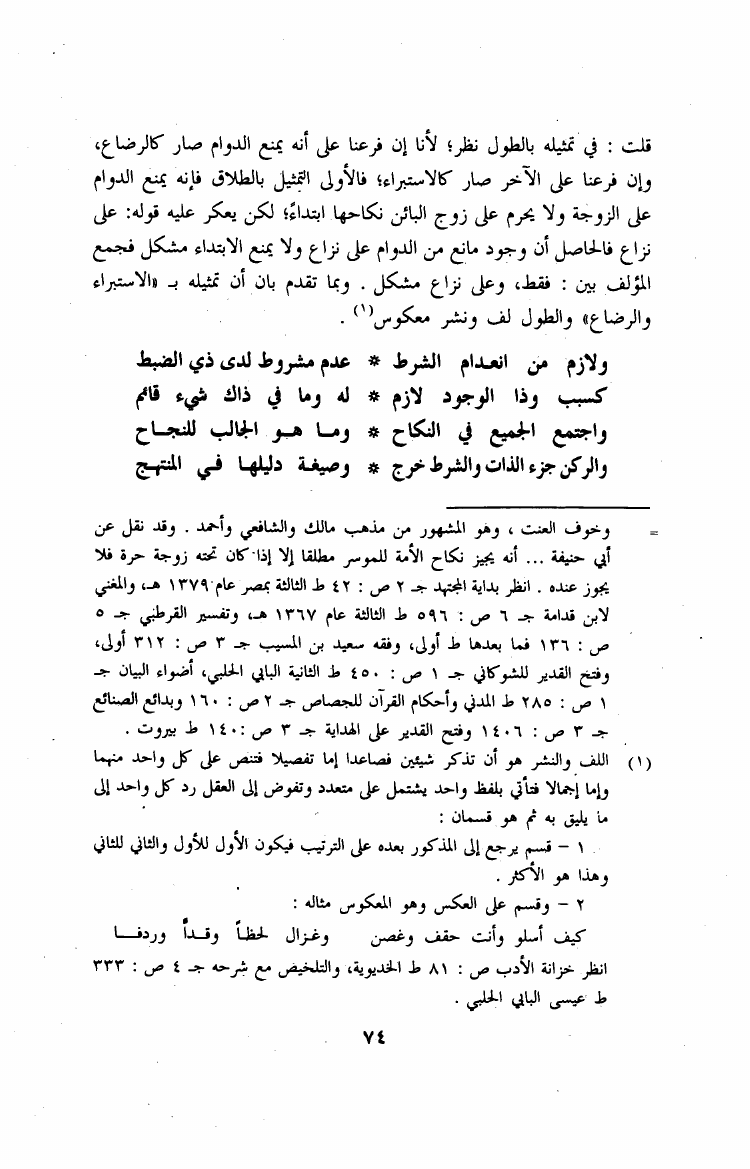 قلت : في تمثيله بالطول نظر؛ لأنا إن فرعنا على أنه يمنع الدوام صار كالرضاع،
وإن فرعنا على الآخر صار كالاستبراء؛ فالأولى التمثيل بالطلاق فإنه يمنع الدوام
على الزوجة ولا يحرم على زوج البائن نكاحها ابتداءً؛ لكن يعكر عليه قوله: على
نزاع فالحاصل أن وجود مانع من الدوام على نزاع ولا يمنع الابتداء مشكل فجمع
المؤلف بين : فقط، وعلى نزاع مشكل . وبما تقدم بان أن تمثيله بـ «الاستبراء
والرضاع» والطول لف ونشر معكوس(١) .
ولازم من انعدام الشرط * عدم مشروط لدى ذي الضبط
كسبب وذا الوجود لازم * له وما في ذاك شيء قائم
واجتمع الجميع في النكاح * وما هو الجالب للنجاح
والركن جزء الذات والشرط خرج * وصيغة دليلها في المنتهج
= وخوف العنت ، وهو المشهور من مذهب مالك والشافعي وأحمد . وقد نقل عن
أبي حنيفة ... أنه يجيز نكاح الأمة للموسر مطلقا إلا إذا كان تحته زوجة حرة فلا
يجوز عنده . انظر بداية المجتهد جـ ٢ ص : ٤٢ ط الثالثة بمصر عام ١٣٧٩ هـ، والمغني
لابن قدامة جـ ٦ ص : ٥٩٦ ط الثالثة عام ١٣٦٧ هـ، وتفسير القرطبي جـ ٥
ص : ١٣٦ فما بعدها ط أولى، وفقه سعيد بن المسيب جـ ٣ ص : ٣١٢ أولى،
وفتخ القدير للشوكاني جـ ١ ص : ٤٥٠ ط الثانية البابي الحلبي، أضواء البيان جـ
١ ص : ٢٨٥ ط المدني وأحكام القرآن للجصاص جـ ٢ ص : ١٦٠ وبدائع الصنائع
جـ ٣ ص : ١٤٠٦ وفتح القدير على الهداية جـ ٣ ص :١٤٠ ط بيروت .
(١) اللف والنشر هو أن تذكر شيئين فصاعدا إما تفصيلا فتنص على كل واحد منهما
وإما إجمالا فتأتي بلفظ واحد يشتمل على متعدد وتفوض إلى العقل رد كل واحد إلى
ما يليق به ثم هو قسمان :
١ - قسم يرجع إلى المذكور بعده على الترتيب فيكون الأول للأول والثاني للثاني
وهذا هو الأكثر .
٢ - وقسم على العكس وهو المعكوس مثاله :
كيف أسلو وأنت حقف وغصن وغزال لحظاً وقداً وردفا
انظر خزانة الأدب ص : ٨١ ط الخديوية، والتلخيص مع شرحه جـ ٤ ص : ٣٣٣
ط عيسى البابي الحلبي .
٧٤